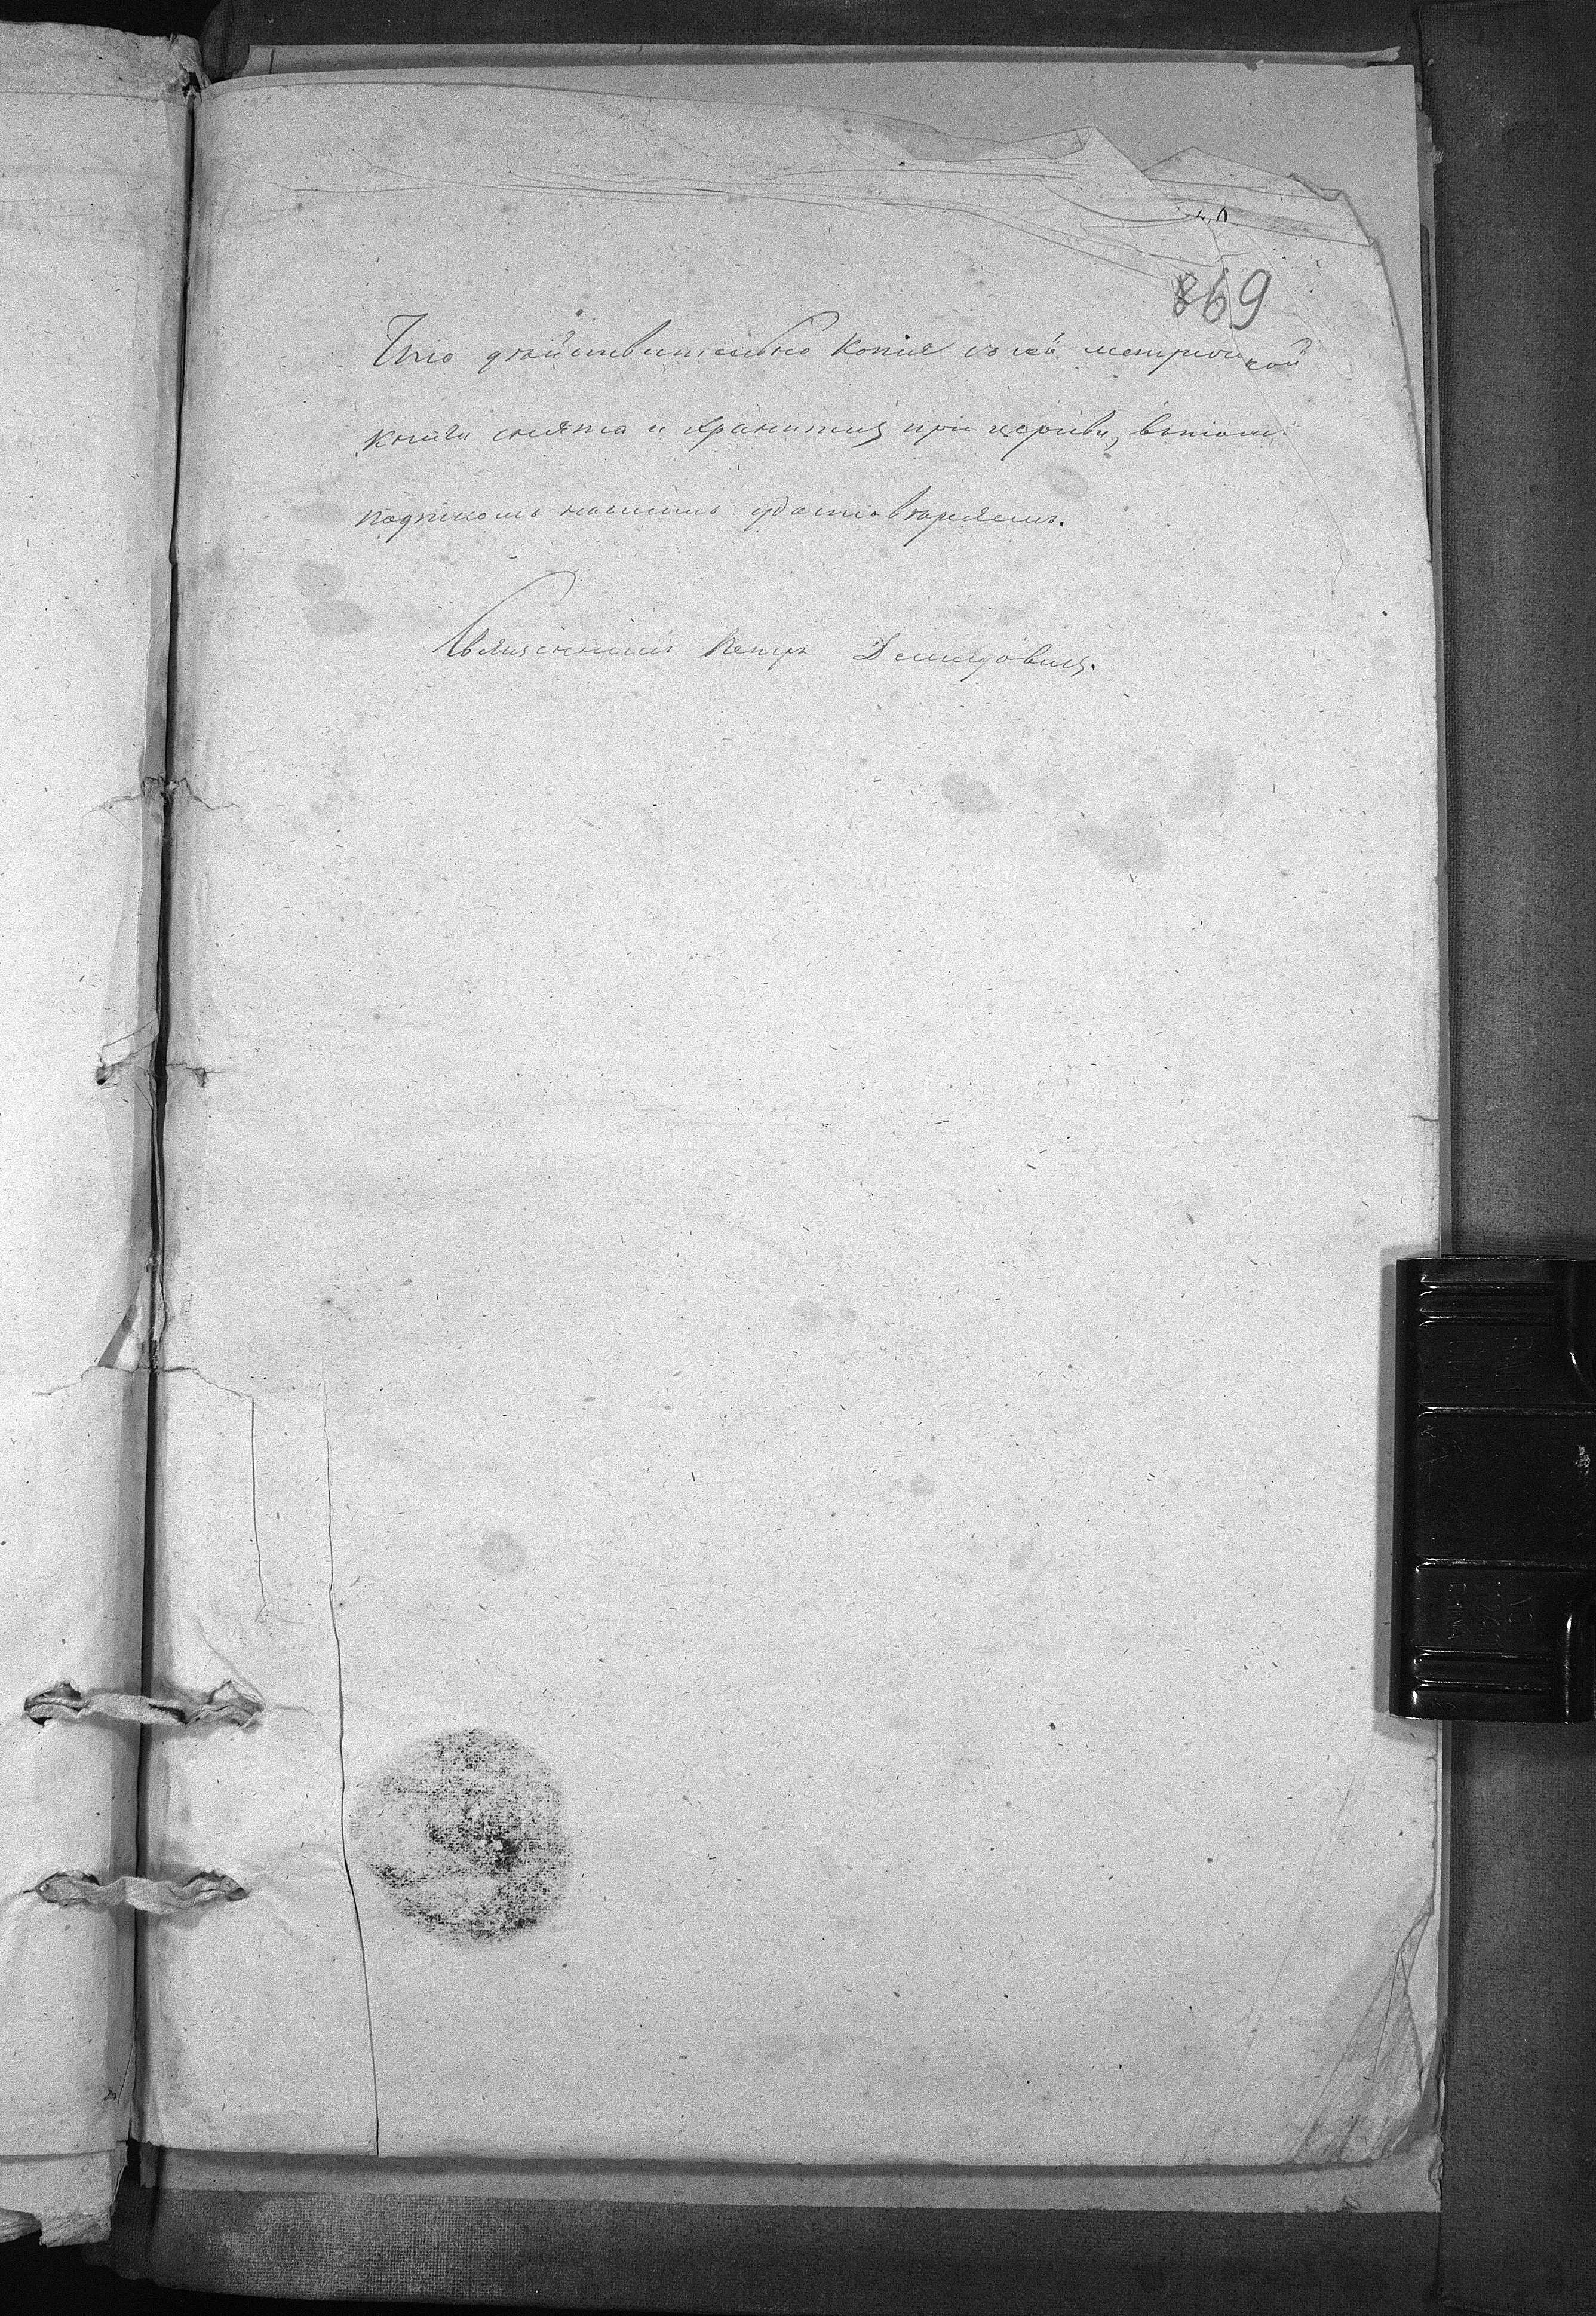 869
Что дѣйствительно копия съ сей метрической
книги снята и хранится при церкви, въ томъ
подписомъ нашимъ удостовѣряемъ.
Священникъ Петръ Демидовичъ.